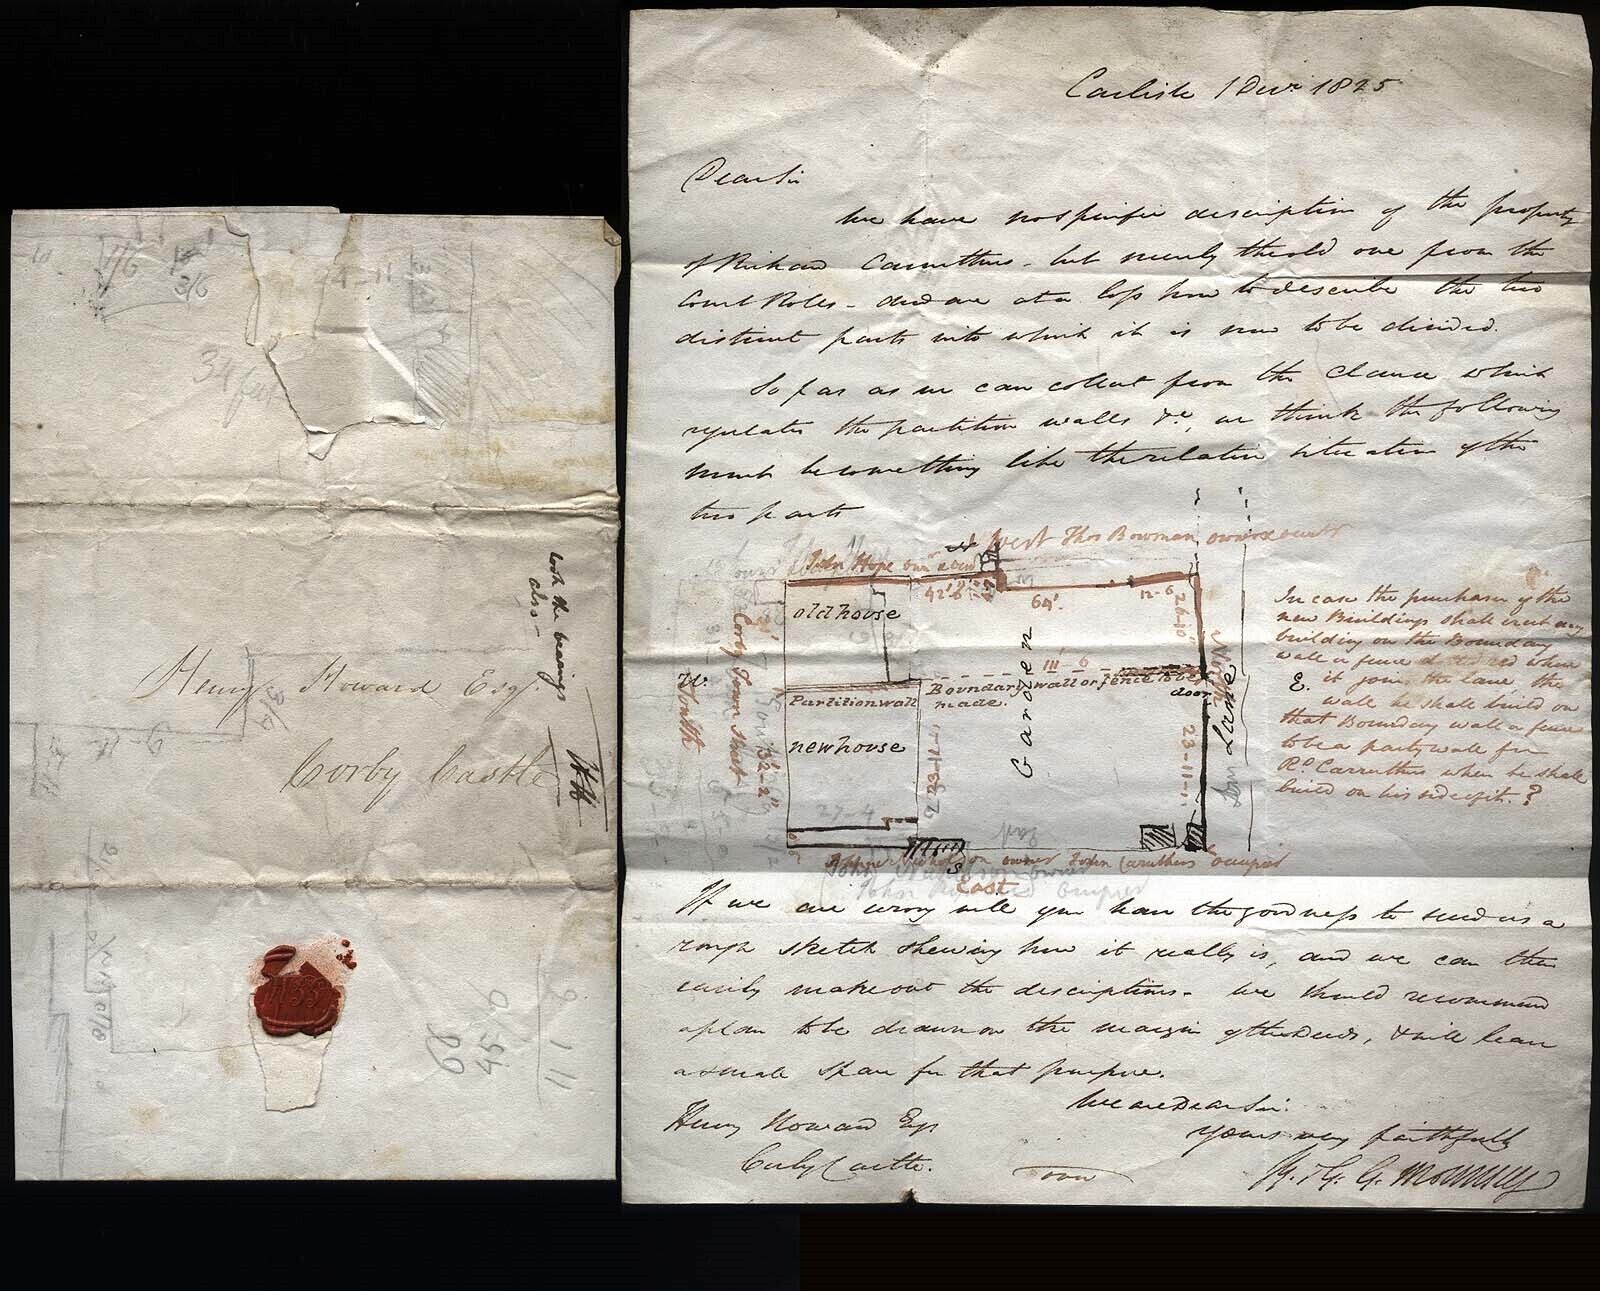 look the bearings
also -
Henry Howard Esqr.
Corby Castle
HH
34 feet
Carlisle 1 Decr 1825
Dear Sir
We have no specific description of the property
of Richard Carruthers - but merely the old one from the
Court Roles - and are at a loss how to describe the two
distinct parts into which it is now to be divided.
So far as we can collect from the Clause which
regulates the partition walls &c, we think the following
must be something like the relative situation of the
two parts
West Thos Bowman owner & occupier
John Hope own
42' 6"
64'.
12-6
26-10"
old house
Partition wall
new house
South
Corby Town Street
31'
32-2"
27-4
Garden
111-6
Boundary wall or fence to be
made.
door
23-11-
23-11-
North
Lane
owner John Carruthers occupier
East
In case the purchaser of the
new Buildings shall erect any
building on the Boundary
wall or fence dotted red where
E. it joins the lane the
wall he shall build on
that Boundary wall or fence
to be a party wall for
Rd. Carruthers when he shall
build on his side of it. ?
If we are wrong will you have the goodness to send us a
rough sketch shewing how it really is, and we can then
easily make out the descriptions - We should recommend
a plan to be drawn on the margin of the Deeds, & will leave
a small space for that purpose.
We are Dear Sir
Yours very faithfully
Henry Howard Esqr
Corby Castle.
G. Mounsey